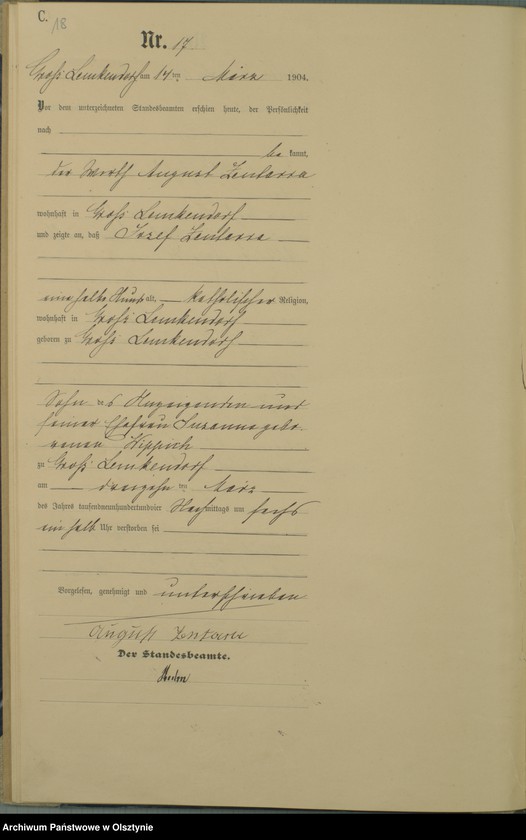 C.
18
Nr. 17
Groß Lemkendorf am 14 ten März 1904.
Vor dem unterzeichneten Standesbeamten erschien heute, der Persönlichkeit
nach
be kannt,
der Wirth August Zentarra
wohnhaft in Groß Lemkendorf
und zeigte an, daß Josef Zentarra
eine halbe Stunde alt, katholischer Religion,
wohnhaft in Groß Lemkendorf
geboren zu Groß Lemkendorf
Sohn des Anzeigenden und
seiner Ehefrau Susanna gebo-
renen Hippich
zu Groß Lemkendorf
am dreizehn ten März
des Jahres tausendneunhundertundvier Nachmittags um sechs
ein halb Uhr verstorben sei
Vorgelesen, genehmigt und unterschrieben
August Zentarra
Der Standesbeamte.
Archiwum Państwowe w Olsztynie